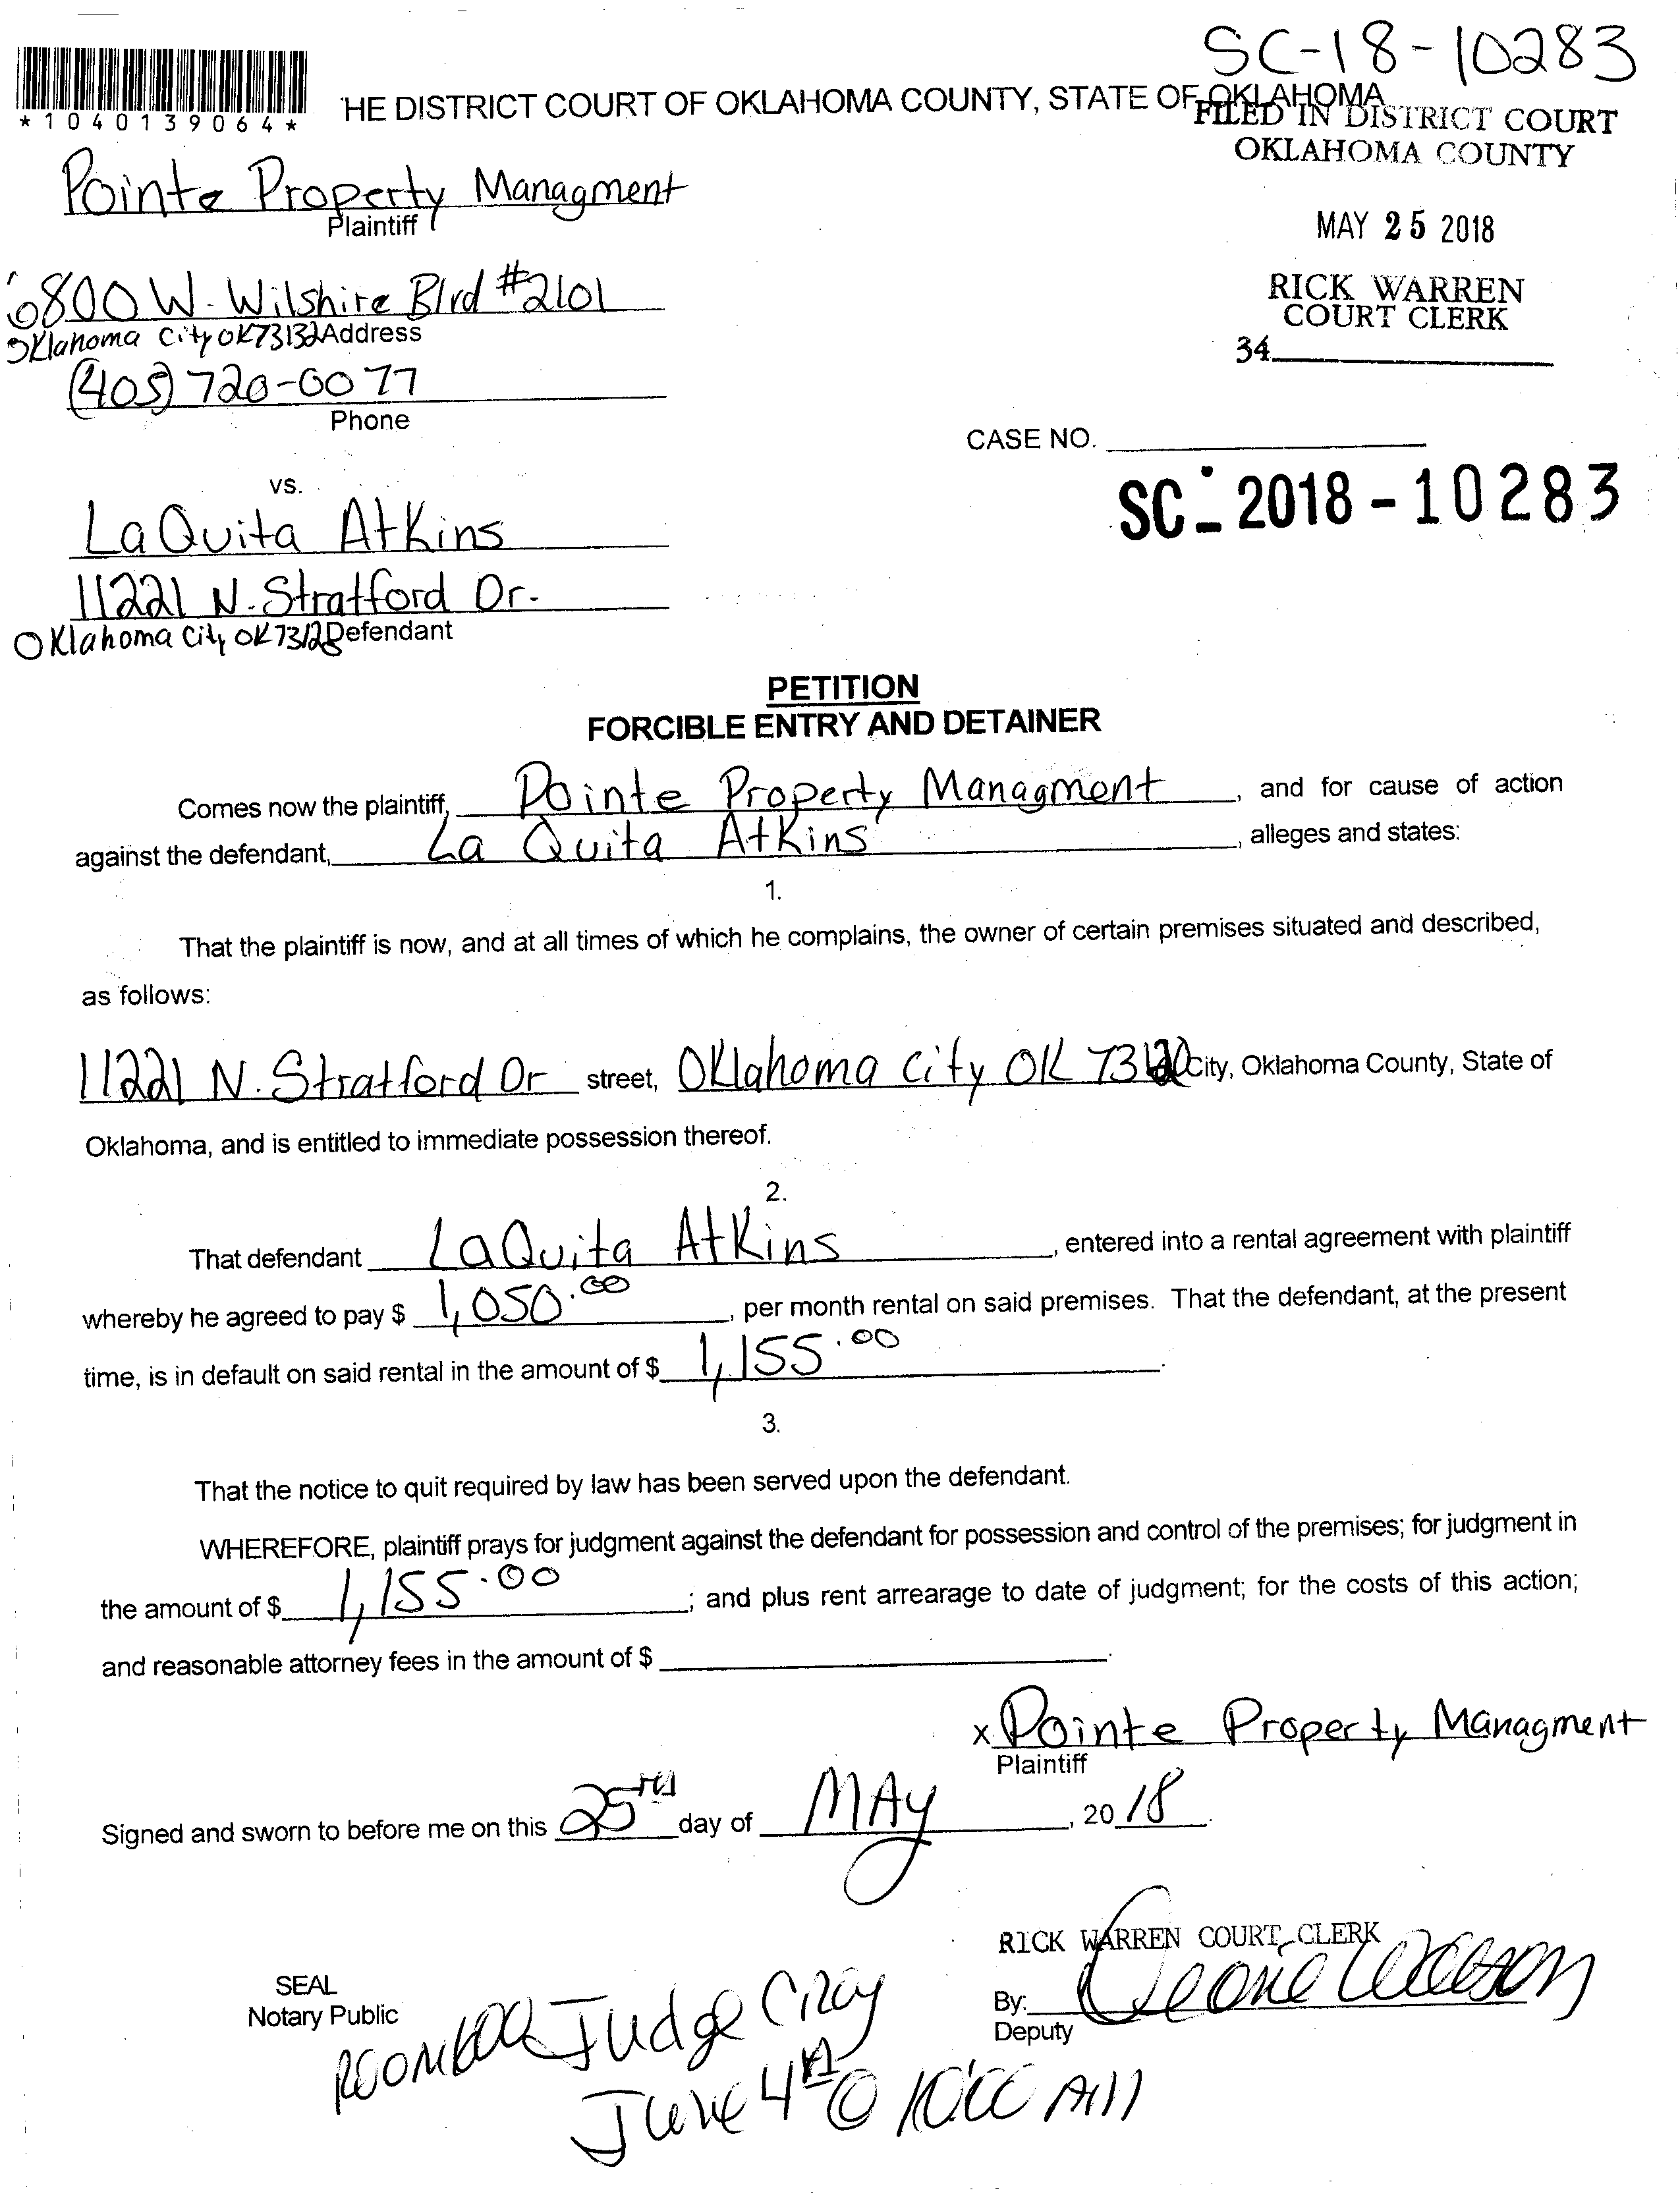 SC-18-10283
*1040139064*
HE DISTRICT COURT OF OKLAHOMA COUNTY, STATE OF OKLAHOMA
FILED IN DISTRICT COURT
OKLAHOMA COUNTY
Pointe Property Managment
Plaintiff
MAY 25 2018
6800 W. Wilshire Blvd #2101
Oklahoma City OK 73132 Address
RICK WARREN
COURT CLERK
34
(405) 720-0077
Phone
CASE NO.
SC - 2018 - 10283
vs.
LaQuita Atkins
11221 N. Stratford Dr.
Oklahoma City OK 73120 Defendant
PETITION
FORCIBLE ENTRY AND DETAINER
Comes now the plaintiff, Pointe Property Managment, and for cause of action
against the defendant, La Quita Atkins, alleges and states:
1.
That the plaintiff is now, and at all times of which he complains, the owner of certain premises situated and described,
as follows:
11221 N. Stratford Dr street, Oklahoma City OK 73120 City, Oklahoma County, State of
Oklahoma, and is entitled to immediate possession thereof.
2.
That defendant LaQuita Atkins, entered into a rental agreement with plaintiff
whereby he agreed to pay $ 1,050.00, per month rental on said premises. That the defendant, at the present
time, is in default on said rental in the amount of $ 1,155.00.
3.
That the notice to quit required by law has been served upon the defendant.
WHEREFORE, plaintiff prays for judgment against the defendant for possession and control of the premises; for judgment in
the amount of $ 1,155.00; and plus rent arrearage to date of judgment; for the costs of this action;
and reasonable attorney fees in the amount of $ .
x Pointe Property Managment
Plaintiff
Signed and sworn to before me on this 25th day of MAy, 2018.
RICK WARREN COURT CLERK
SEAL
Notary Public
By:
Deputy
Judge
June 4th @ 10:00 AM